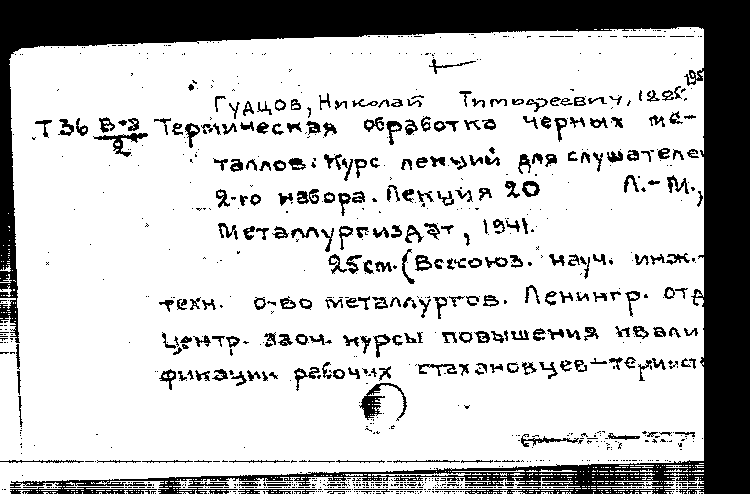 Гудцов, Николай Тимофеевич, 1885. 195
Т36 В-3/2 Термическая обработка черных ме-
таллов: Курс лекций для слушателей
2-го набора. Лекция 20 Л.-М.,
Металлургиздат, 1941.
25см. (Всесоюз. науч. инж.-
техн. о-во металлургов. Ленингр. отд
Центр. заоч. курсы повышения квали
фикации рабочих стахановцев-термисто